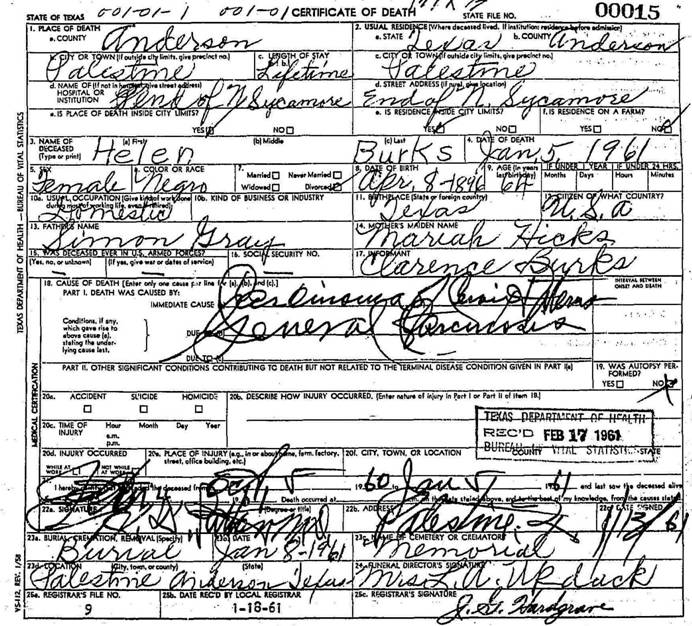 001-01-1 001-01
STATE OF TEXAS CERTIFICATE OF DEATH STATE FILE NO. 00015
1. PLACE OF DEATH 2. USUAL RESIDENCE (Where deceased lived. If institution: residence before admission)
a. COUNTY Anderson a. STATE Texas b. COUNTY Anderson
b. CITY OR TOWN (If outside city limits, give precinct no.) c. LENGTH OF STAY c. CITY OR TOWN (If outside city limits, give precinct no.)
Palestine Lifetime Palestine
d. NAME OF (If not in hospital, give street address) HOSPITAL OR INSTITUTION d. STREET ADDRESS (If rural, give location)
End of N Sycamore End of N. Sycamore
e. IS PLACE OF DEATH INSIDE CITY LIMITS? e. IS RESIDENCE INSIDE CITY LIMITS? f. IS RESIDENCE ON A FARM?
YES NO YES NO YES NO
3. NAME OF DECEASED (Type or print) (a) First (b) Middle (c) Last 4. DATE OF DEATH
Helen Burks Jan 5 1961
5. SEX 6. COLOR OR RACE 7. Married Never Married Widowed Divorced 8. DATE OF BIRTH 9. AGE (In years last birthday) IF UNDER 1 YEAR IF UNDER 24 HRS.
Months Days Hours Minutes
Female Negro Apr 8-1896 64
10a. USUAL OCCUPATION (Give kind of work done during most of working life, even if retired) 10b. KIND OF BUSINESS OR INDUSTRY 11. BIRTHPLACE (State or foreign country) 12. CITIZEN OF WHAT COUNTRY?
Domestic Texas U.S.A
13. FATHER'S NAME 14. MOTHER'S MAIDEN NAME
Simon Gray Mariah Hicks
15. WAS DECEASED EVER IN U.S. ARMED FORCES? 16. SOCIAL SECURITY NO. 17. INFORMANT
(Yes, no, or unknown) (If yes, give war or dates of service) Clarence Burks
18. CAUSE OF DEATH [Enter only one cause per line for (a), (b), and (c).] INTERVAL BETWEEN ONSET AND DEATH
PART I. DEATH WAS CAUSED BY:
IMMEDIATE CAUSE Carcinoma of
Conditions, if any, which gave rise to above cause (a), stating the underlying cause last.
DUE General
DUE TO (c)
PART II. OTHER SIGNIFICANT CONDITIONS CONTRIBUTING TO DEATH BUT NOT RELATED TO THE TERMINAL DISEASE CONDITION GIVEN IN PART I(a) 19. WAS AUTOPSY PERFORMED?
YES NO
20a. ACCIDENT SUICIDE HOMICIDE 20b. DESCRIBE HOW INJURY OCCURRED. (Enter nature of injury in Part I or Part II of item 18.)
20c. TIME OF INJURY Hour Month Day Year
a.m.
p.m.
TEXAS DEPARTMENT OF HEALTH
REC'D FEB 17 1961
BUREAU OF VITAL STATISTICS
20d. INJURY OCCURRED 20e. PLACE OF INJURY (e.g., in or about home, farm, factory, street, office building, etc.) 20f. CITY, TOWN, OR LOCATION COUNTY STATE
WHILE AT WORK NOT WHILE AT WORK
I hereby certify that I attended the deceased from 1960 Jan 5 1961 and last saw the deceased alive
Death occurred at m. on the date stated above, and to the best of my knowledge, from the causes stated
22a. SIGNATURE (Degree or title) 22b. ADDRESS 22c. DATE SIGNED
Palestine
23a. BURIAL, CREMATION, REMOVAL (Specify) 23b. DATE 23c. NAME OF CEMETERY OR CREMATORY
Burial Jan 8-1961 Memorial
23d. LOCATION (City, town, or county) (State) 24. FUNERAL DIRECTOR'S SIGNATURE
Palestine Anderson Texas Mrs L. A.
25a. REGISTRAR'S FILE NO. 25b. DATE REC'D BY LOCAL REGISTRAR 25c. REGISTRAR'S SIGNATURE
9 1-18-61 J. G. Hardgrave
TEXAS DEPARTMENT OF HEALTH — BUREAU OF VITAL STATISTICS
MEDICAL CERTIFICATION
VS-112, REV. 1/58